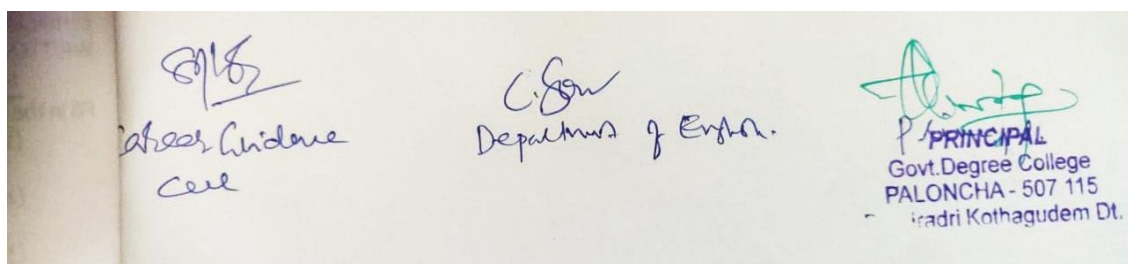 Career Guidance
Cell
Department of English.
PRINCIPAL
Govt.Degree College
PALONCHA - 507 115
radri Kothagudem Dt.